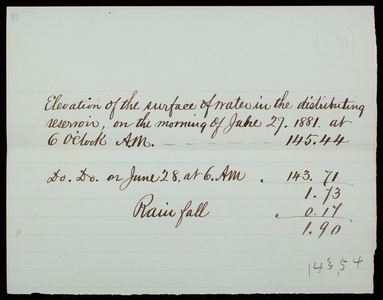 Elevation of the surface of water in the distributing
reservoir, on the morning of June 27. 1881. at
6 O'Clock A.M. 145.44
Do. Do. on June 28. at 6. AM 143.71
1.73
Rain fall 0.17
1.90